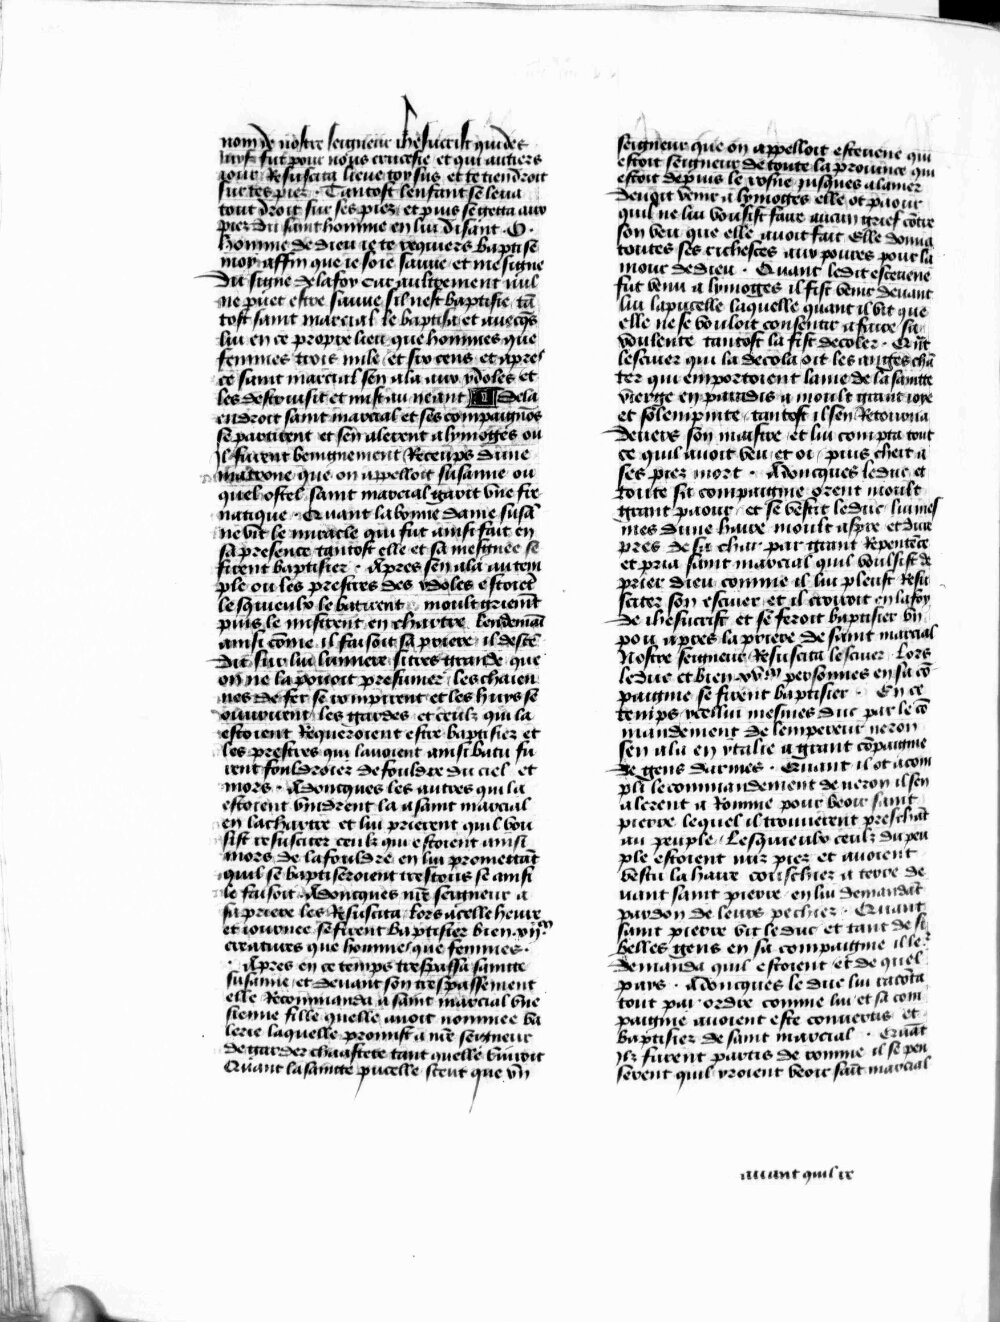 nom de nostre seigneur ihesucrist qui des
juifs fut pour nous crucefie et qui au tiers
jour Resuscita lieve toy sus et te tiendroit
sur tes piez . Tantost lenfant se leva
tout droit sur ses piez et puis se getta aux
piez du saint homme en lui disant . O .
homme de dieu ie te requiers baptise
moy affin que ie soie sauve et me signe
du signe de la foy car aultrement nul
ne puet estre sauve sil nest baptisie tā
tost saint marcial le baptisa et avecqs
lui en ce propre lieu que hommes que
femmes trois mile et six cens et apres
ce saint marcial sen ala aux ydoles et
les destruisit et mist au neant I De la
endroit saint marcial et ses compaignōs
se partirent et sen alerent a lymoges ou
Jl furent benignement Receups dune
matrone que on appelloit susanne ou
quel hostel saint marcial garit vne fre
natique . Quant la bonne dame susā
ne vit le miracle qui fut ainsi fait en
sa presence tantost elle et sa mesgnee se
firent baptisier . Apres sen ala au tem
ple ou les prestres des ydoles estoiēt
lesquieulx le batirent moult griemt
puis le misirent en chartre lendemaī
ainsi cōme il faisoit sa priere il desce
dit sur lui lumiere si tres grande que
on ne la povoit presumer les chaien
nes de fer se rompirent et les huys se
ouvrirent les gardes et ceulx qui la
estoient Requeroient estre baptisiez et
les prestres qui lavoient ainsi batu fu
rent fouldroiez de fouldre du ciel et
mors . Adoncques les autres qui la
estoient vindrent la a saint marcial
en la chartre et lui prierent quil vou
sist resusciter ceulz qui estoient ainsi
mors de la fouldre en lui promettāt
quil se baptiseroient trestous se ainsi
le faisoit Adoncques nre seigneur a
sa priere les Resuscita lors a celle heure
et iournee se firent baptisiez bien .xxij.m
creatures que homme que femmes .
. Apres en ce temps trespassa sainte
susanne et devant son trespassement
elle Recommanda a saint marcial vne
sienne fille quelle avoit nommee va
lerie laquelle promist a nre seigneur
de garder chaastete tant quelle vivroit
Quant la sainte pucelle sceut que vn
seigneur que on appelloit estevene qui
estoit seigneur de toute la province qui
estoit depuis le rosne jusques a la mer
devoit venir a lymoges elle ot paour
quil ne lui vousist faire aucun grief cōtre
son veu que elle avoit fait Elle donna
toutes ses richesces aux povres pour la
mour de dieu . Quant ledit estevene
fut venu a lymoges il fist venir devant
lui la pucelle laquelle quant il vit que
elle ne se vouloit consentir a faire sa
voulente tantost la fist decoler . Quāt
lescuier qui la decola oit les anges chā
ter qui emportoient lame de la sainte
vierge en paradis a moult grant ioye
et solempnite tantost il sen Retourna
devers son maistre et lui compta tout
ce quil avoit veu et oi puis cheit a
ses piez mort . Adoncques le duc et
toute sa compaignie orent moult
grant paour et se vestit le duc lui mes
mes dune haire moult aspre et dure
pres de sa char par grant Repentāce
et pria saint marcial quil voulsist de
prier dieu comme il lui pleust Resu
sciter son escuier et il croiroit en la foy
de ihesucrist et se feroit baptisier vn
pou apres la priere de saint marcial
Nostre seigneur Resuscita lescuier . Lors
le duc et bien personnes en sa cō
paignie se firent baptisier . En ce
temps ycellui mesmes duc par le cō
mandement de lempereur neron
sen ala en ytalie a grant cōpaignie
de gens darmes . Quant il ot acom
pli le commandement de neron il sen
alerent a Romme pour veoir saint
pierre lequel il trouverent preschāt
au peuple . Lesquieulx ceulz du peu
ple estoient nuz piez et avoient
vestu la haire couschiez a terre de
vant saint pierre en lui demandāt
pardon de leurs pechiez . Quant
saint pierre vit le duc et tant de si
belles gens en sa compaignie il le
demanda quil estoient et de quel
pays . Adoncques le duc lui racōta
tout par ordre comme lui et sa com
paignie avoient este convertis et
baptisiez de saint marcial . Quāt
Ilz furent partis de romme il se pen
serent quil yroient veoir saīt marcial
avant quil re